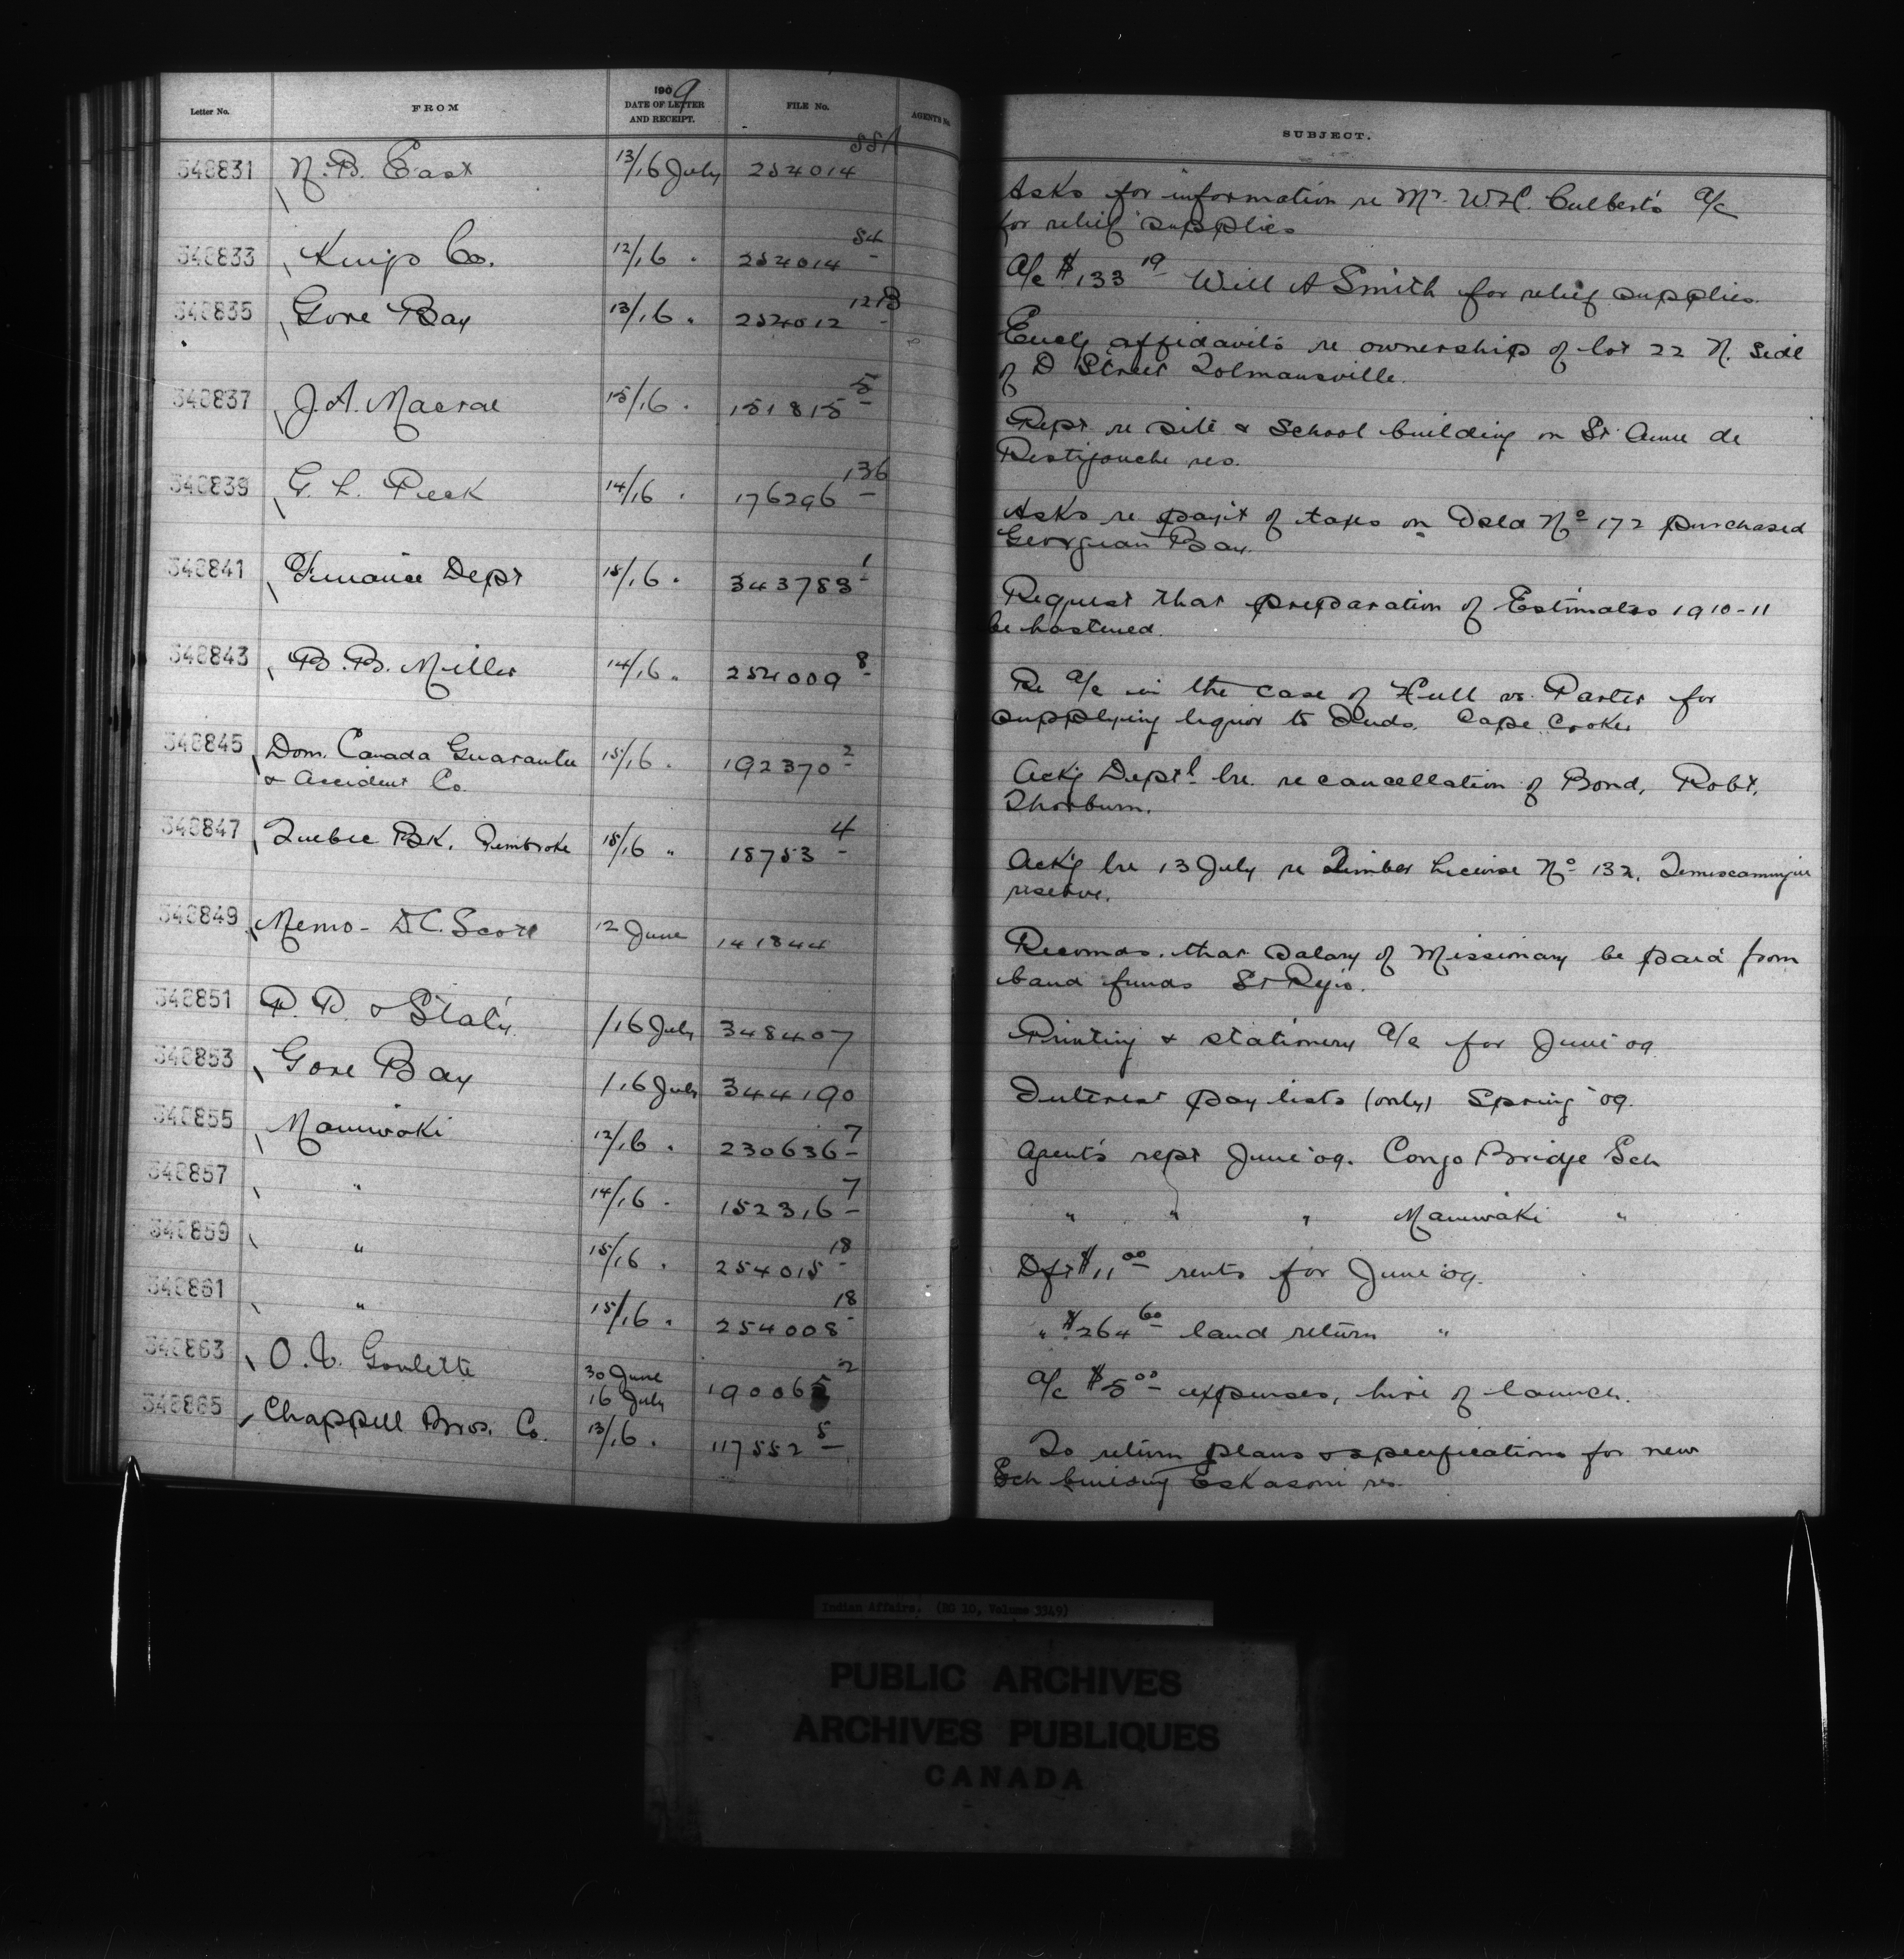 Letter No. FROM 1909 DATE OF LETTER AND RECEIPT. FILE No. AGENT'S No. SUBJECT.
348831 N.B. East 13/16 July 254014 55A Asks for information re Mr. W.H. Culbert's a/c
for relief supplies
348833 Kings Co. 12/16 " 254014 54 a/c $133 19 Will A Smith for relief supplies.
348835 Gore Bay 13/16 " 254012 12B Encl'g affidavits re ownership of lot 22 N. Side
of D Street Tolmansville.
348837 J.A. Macrae 15/16 " 151815 5 Rept re site & School building on St Anne de
Restigouche res.
348839 G. L. Peck 14/16 " 176296 136 Asks re paym't of taxes on Isld No 172 purchased
Georgian Bay.
348841 Finance Dept 15/16 " 343783 1 Request that preparation of Estimates 1910-11
be hastened.
348843 B.B. Miller 14/16 " 254009 8 Re a/c in the case of Hull vs. Parter for
supplying liquor to Inds. Cape Croker
348845 Dom. Canada Guarantee
& Accident Co. 15/16 " 192370 2 Ack'g Dept'l lre. re cancellation of Bond, Robt.
Thorburn.
348847 Quebec BK. Pembroke 15/16 " 15753 4 Ack'g lre 13 July re Timber License No 132, Temiscamingue
reserve.
348849 Memo - D.C. Scott 12 June 141844 Recomds. that salary of Missionary be paid from
band funds St Regis.
348851 P. P. & Stat'y. /16 July 348407 Printing & stationery a/c for June '09
348853 Gore Bay /16 July 344190 Interest pay lists (only) Spring '09.
348855 Maniwaki 12/16 " 230636 7 Agent's rept June '09. Congo Bridge Sch
348857 " 14/16 " 152316 7 " " " Maniwaki "
348859 " 15/16 " 254015 18 Dft $11 00 rents for June '09.
348861 " 15/16 " 254008 18 " $264 60 land return "
348863 O. V. Goulette 30 June
16 July 190065 2 a/c $5 00 expenses, hire of launch.
348865 Chappell Bros. Co. 13/16 " 117552 5 To return plans & specifications for new
Sch building Eskasoni res.
Indian Affairs. (RG 10, Volume 3349)
PUBLIC ARCHIVES
ARCHIVES PUBLIQUES
CANADA